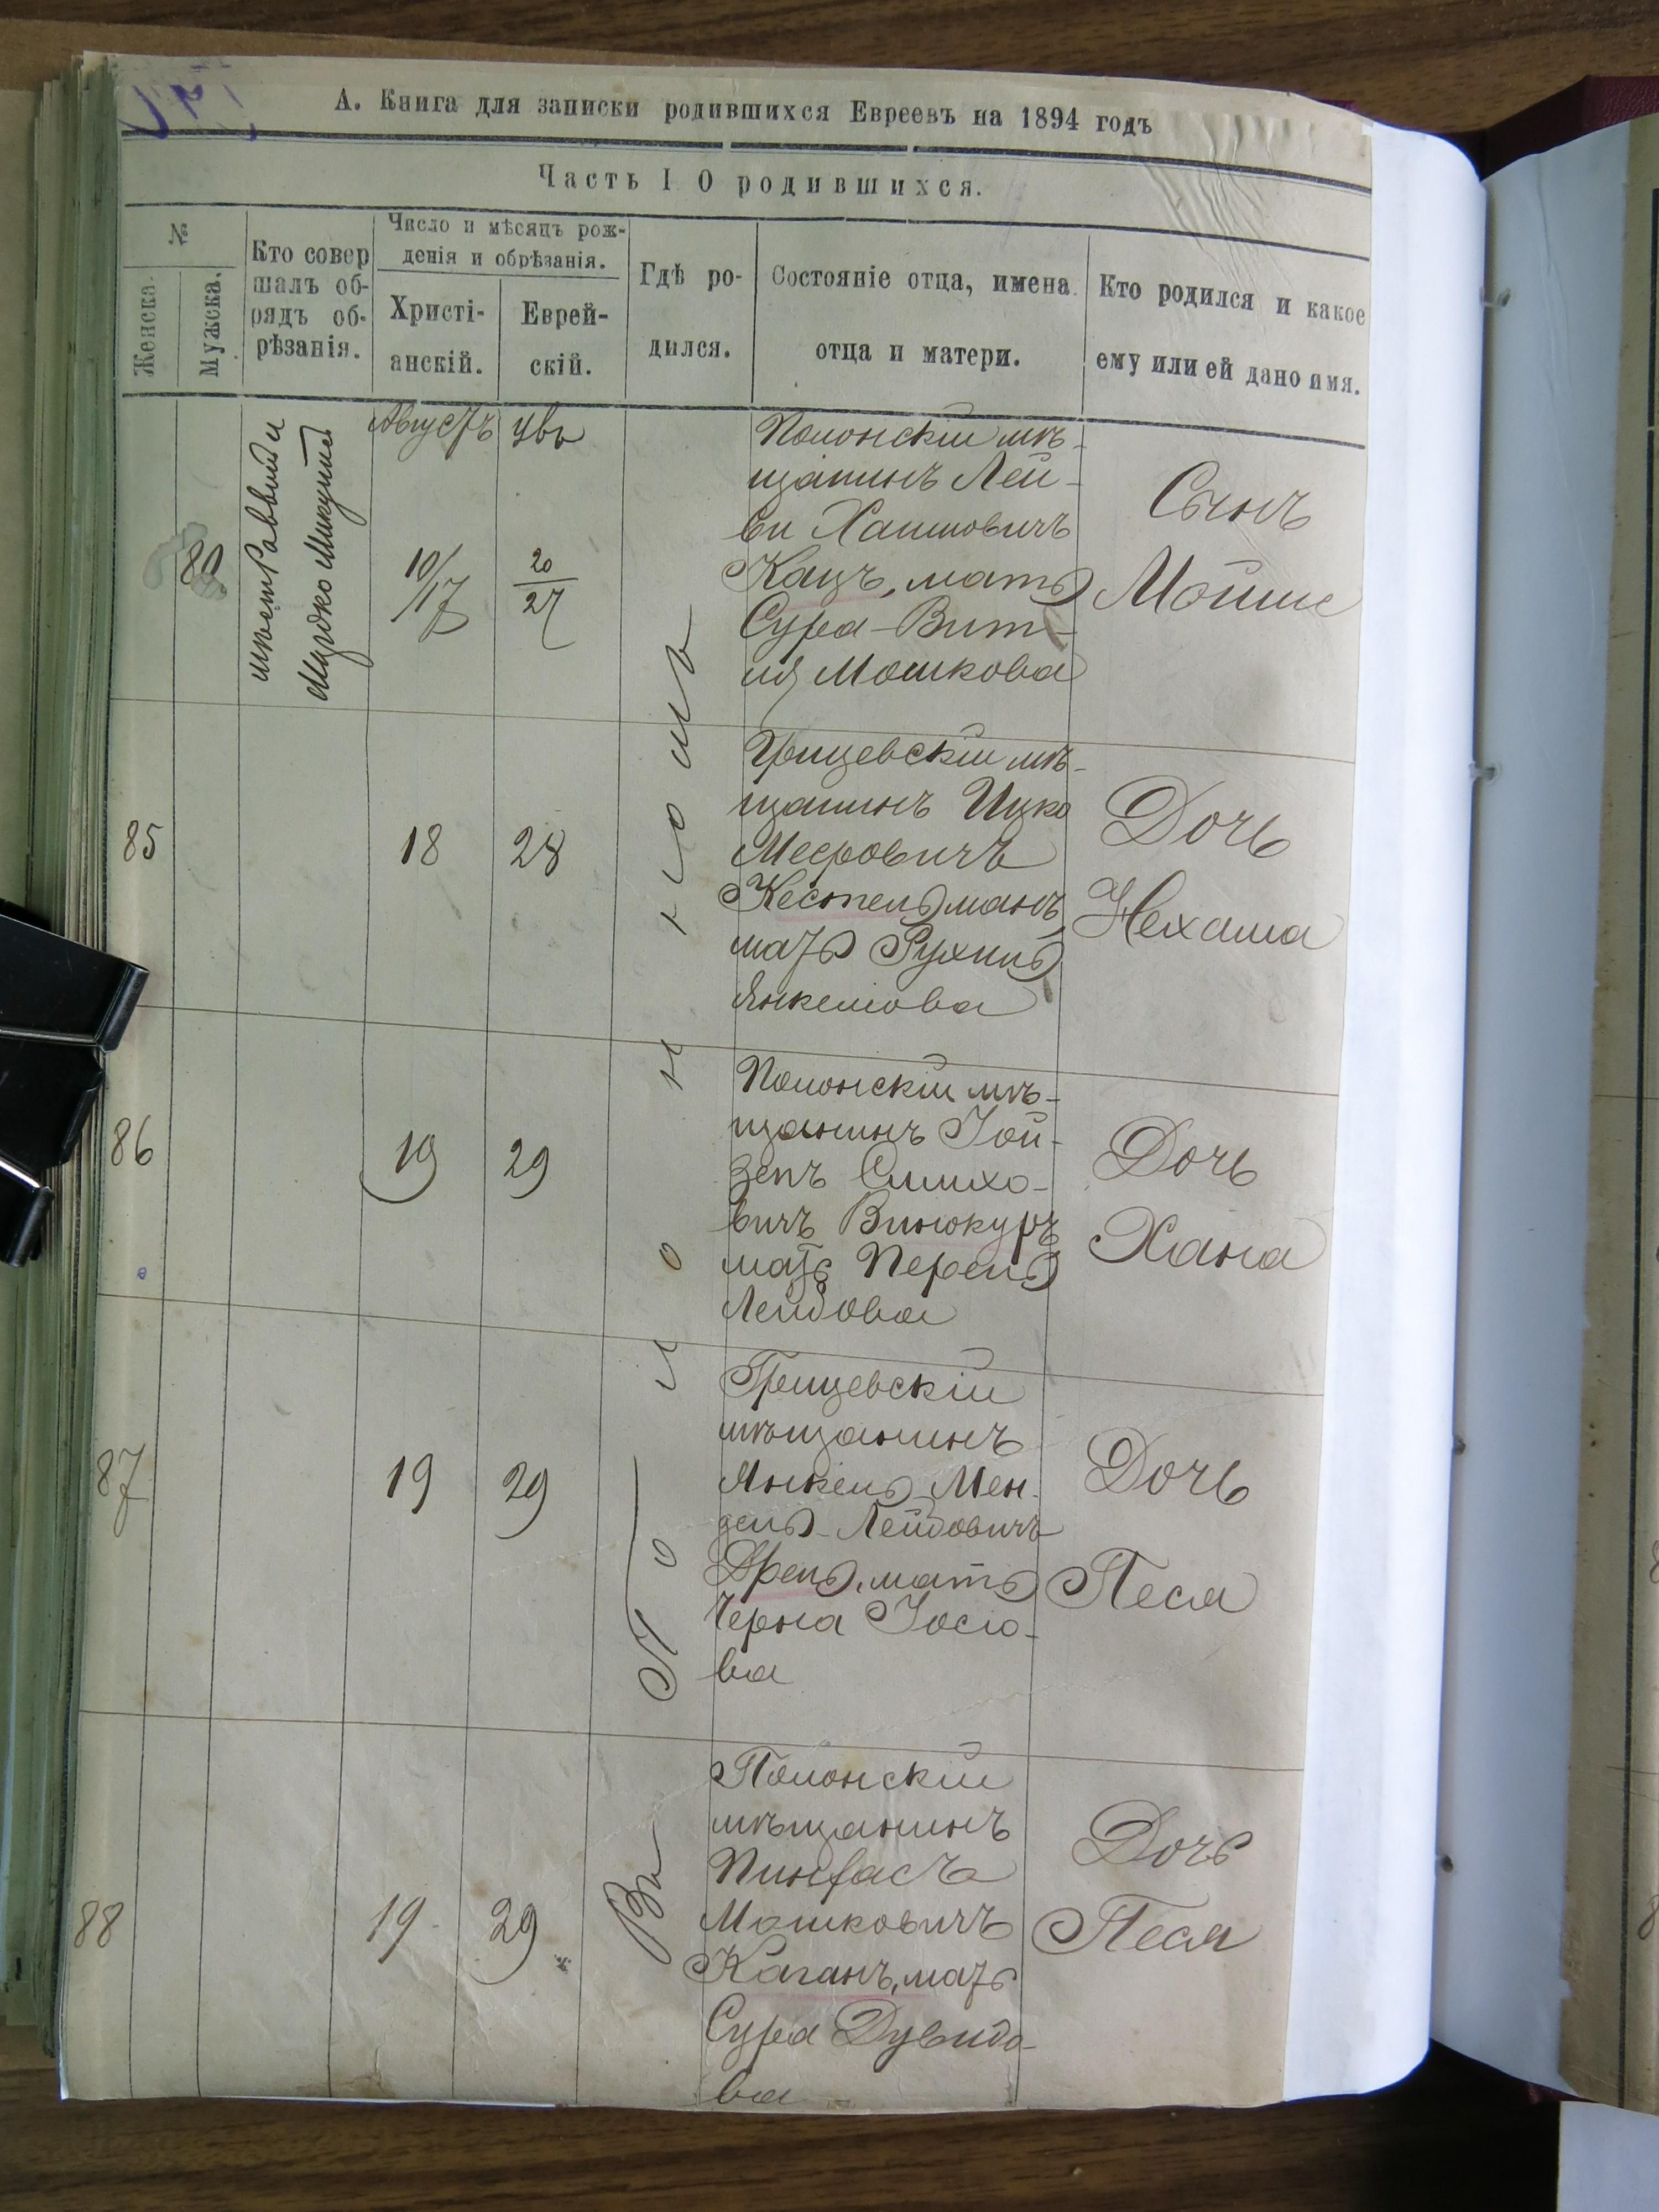 А. Книга для записки родившихся Евреевъ на 1894 годъ
Часть I О родившихся.
№
Женска.
Мужска.
Кто совер
шалъ об-
рядъ об-
рѣзанія.
Число и мѣсяцъ рож-
денія и обрѣзанія.
Христі-
анскій.
Еврей-
скій.
Гдѣ ро-
дился.
Состояніе отца, имена
отца и матери.
Кто родился и какое
ему или ей дано имя.
Августъ
80
10/17
20
27
Полонскій мѣ-
щанинъ Лей-
би Хаимовичъ
Кацъ, мать
Сура-Вит-
ля Мошкова
Сынъ
Мойше
85
18
28
Грицевскій мѣ-
щанинъ Ицко
Мееровичъ
Кестельманъ,
мать Рухль
Янкелова
Дочь
Нехама
86
19
29
Полонскій мѣ-
щанинъ Іой-
зепъ Симхо-
вичъ Винокуръ
мать Перель
Лейбова
Дочь
Хана
87
19
29
Грицевскій
мѣщанинъ
Янкель-Мен-
дель Лейбовичъ
мать
Черна Іосио-
ва
Дочь
Песя
88
19
29
Полонскій
мѣщанинъ
Пинхасъ
Мошковичъ
Каганъ, мать
Сура Дувидо-
ва
Дочь
Песя
Въ Полонномъ